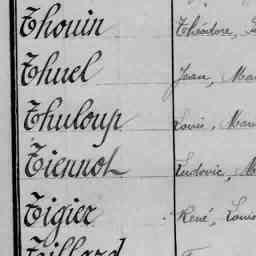 Thouin Théodore,
Thuel Jean, Mar
Thuloup Louis, Mar
Tiennot Ludovic, M
Tigier René, Louis
Taillard